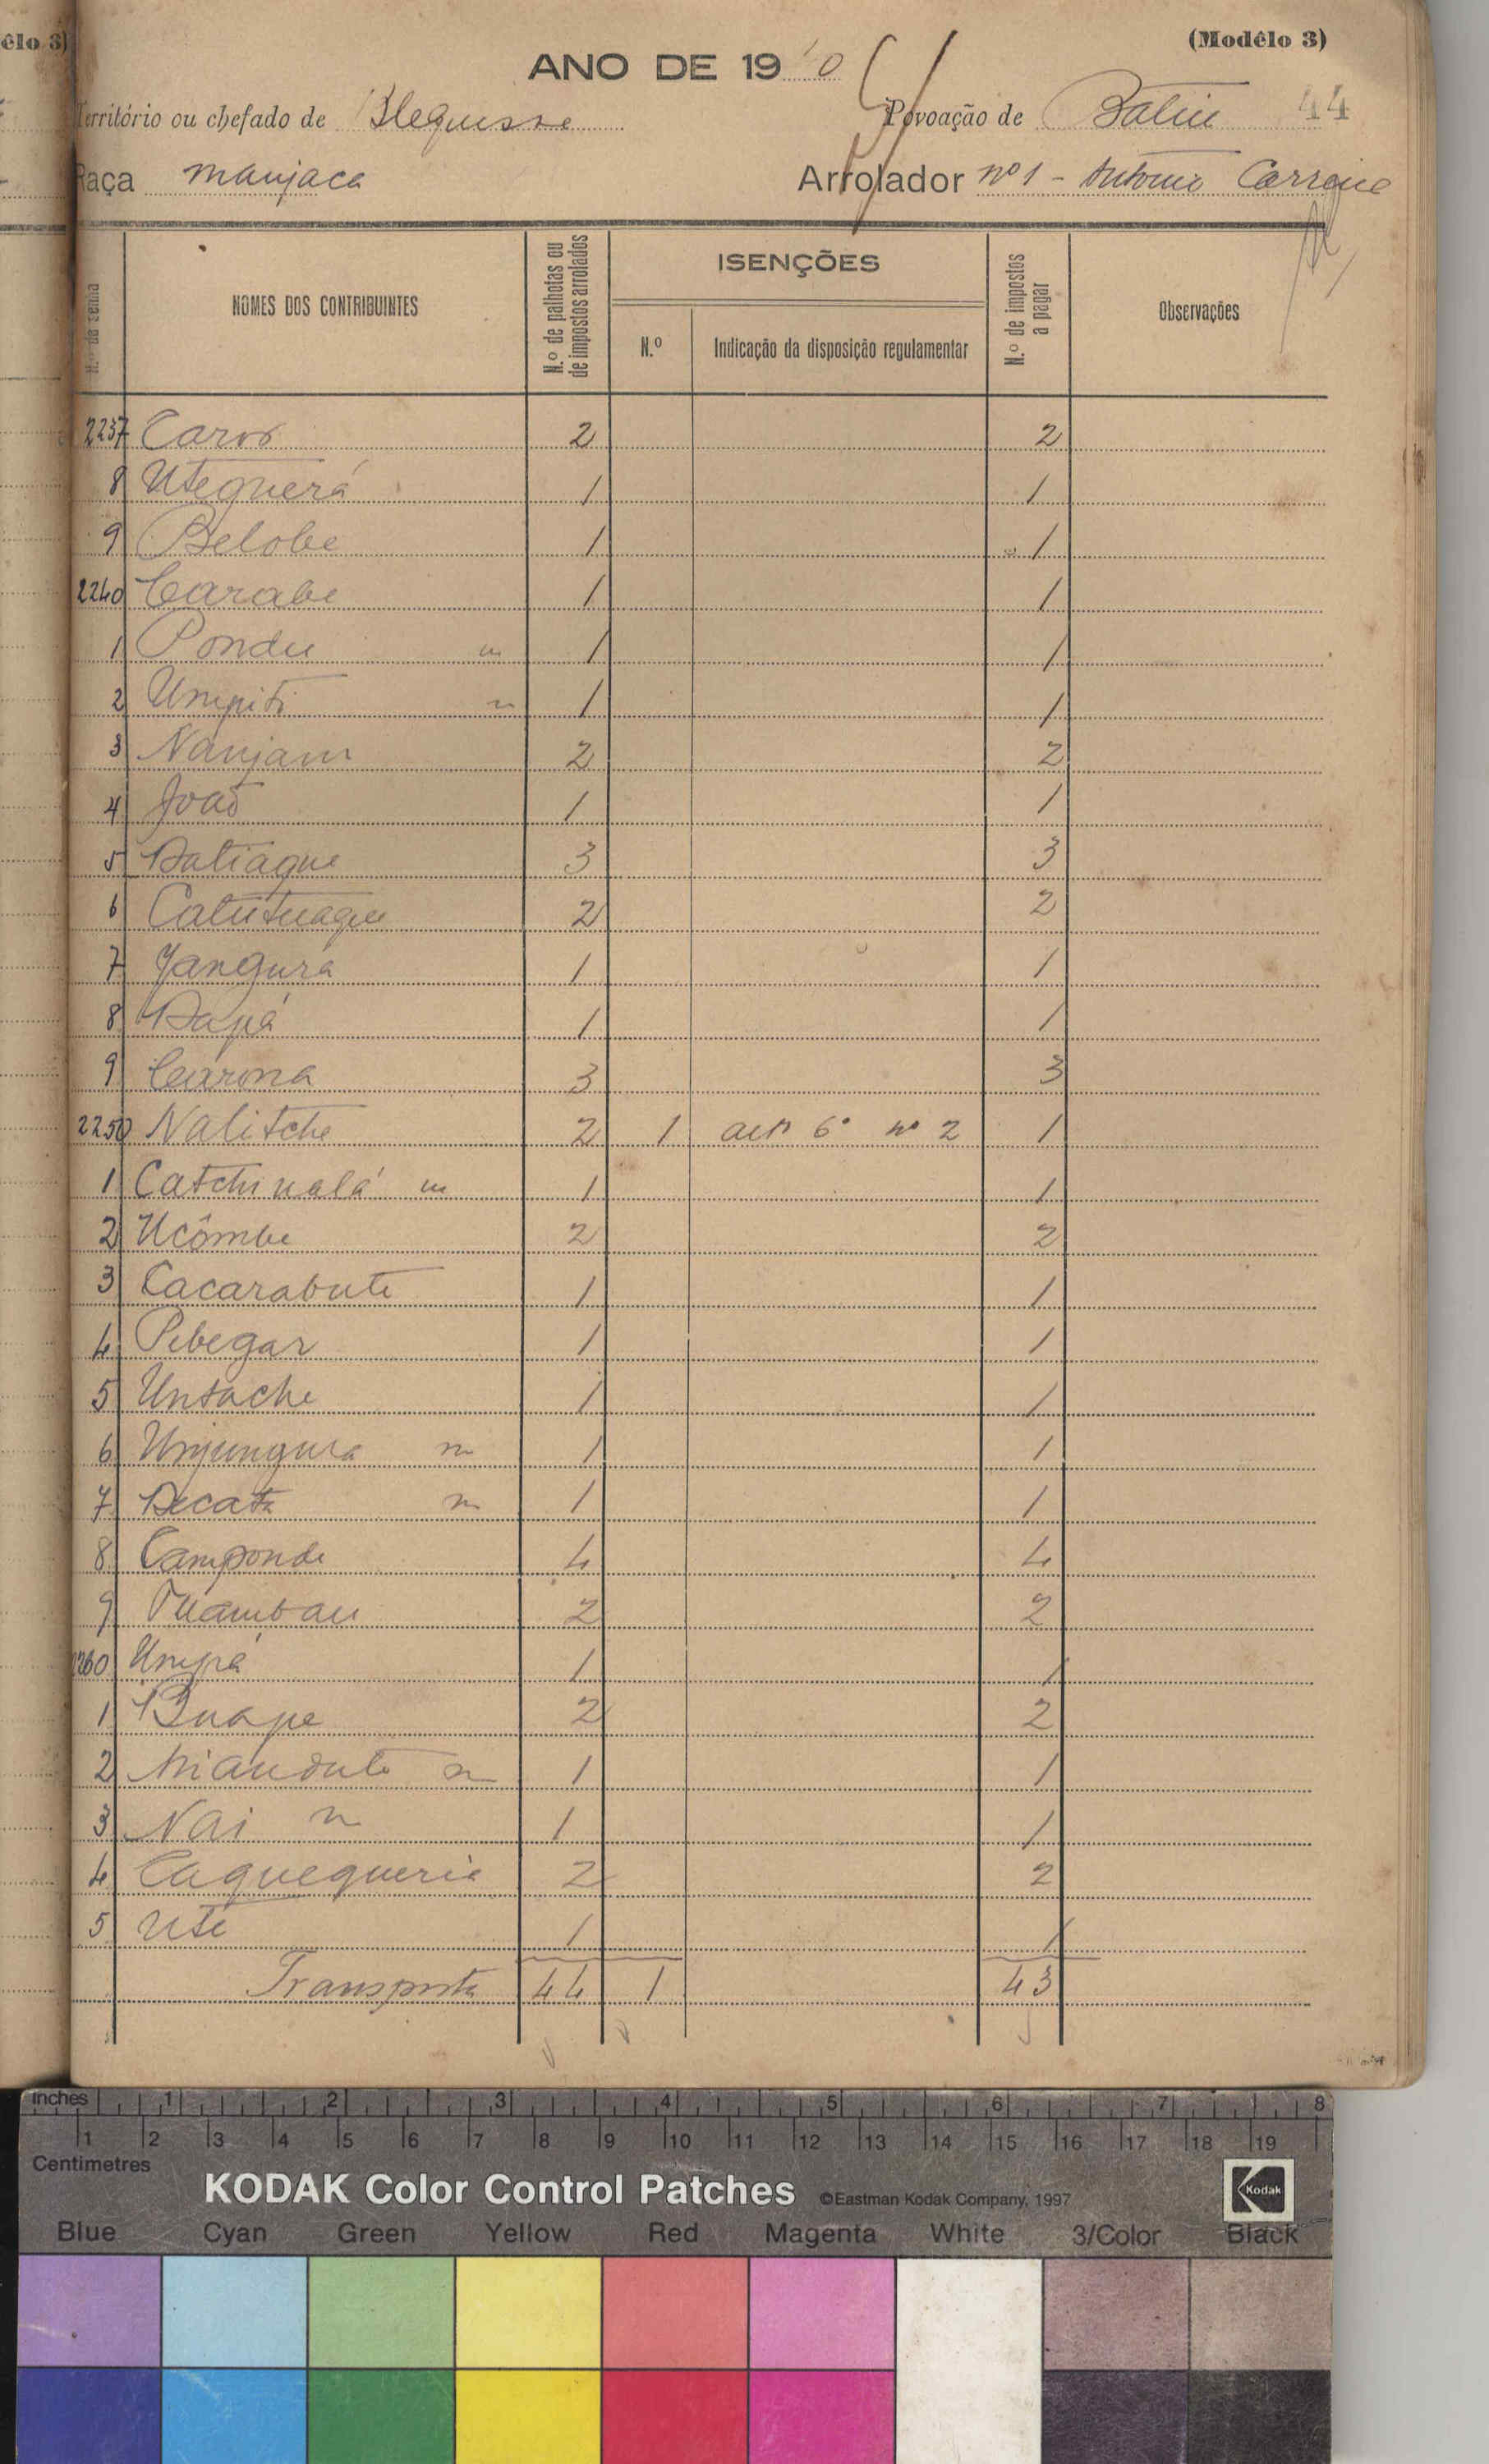 êlo 3)
(Modêlo 3)
ANO DE 19
Território ou chefado de Blequisse Povoação de 44
Raça manjaca Arrolador nº 1 - Antonio
N.º da senha
NOMES DOS CONTRIBUINTES
N.º de palhotas ou de impostos arrolados
ISENÇÕES
N.º
Indicação da disposição regulamentar
N.º de impostos a pagar
Observações
2237 Caros 2 2
8 Uteguerá 1 1
9 Belobe 1 1
2240 Carabe 1 1
1 Pondu m 1 1
2 Umpiti m 1 1
3 Nanjam 2 2
4 João 1 1
5 Batiaque 3 3
6 2 2
7 Jangura 1 1
8 Dapá 1 1
9 Carona 3 3
2250 Nalitche 2 1 artº 6º nº 2 1
1 Catchinalá m 1 1
2 Ucômbe 2 2
3 Cacarabute 1 1
4 Pebegar 1 1
5 Untache 1 1
6 Unjungura m 1 1
7 m 1 1
8 Camponde 4 4
9 2 2
2260 Umpá 1 1
1 Buape 2 2
2 m 1 1
3 Nai m 1 1
4 2 2
5 Uté 1 1
Transporte 44 1 43
Inches 1 2 3 4 5 6 7 8
1 2 3 4 5 6 7 8 9 10 11 12 13 14 15 16 17 18 19
Centimetres
KODAK Color Control Patches ©Eastman Kodak Company, 1997 Kodak
Blue Cyan Green Yellow Red Magenta White 3/Color Black